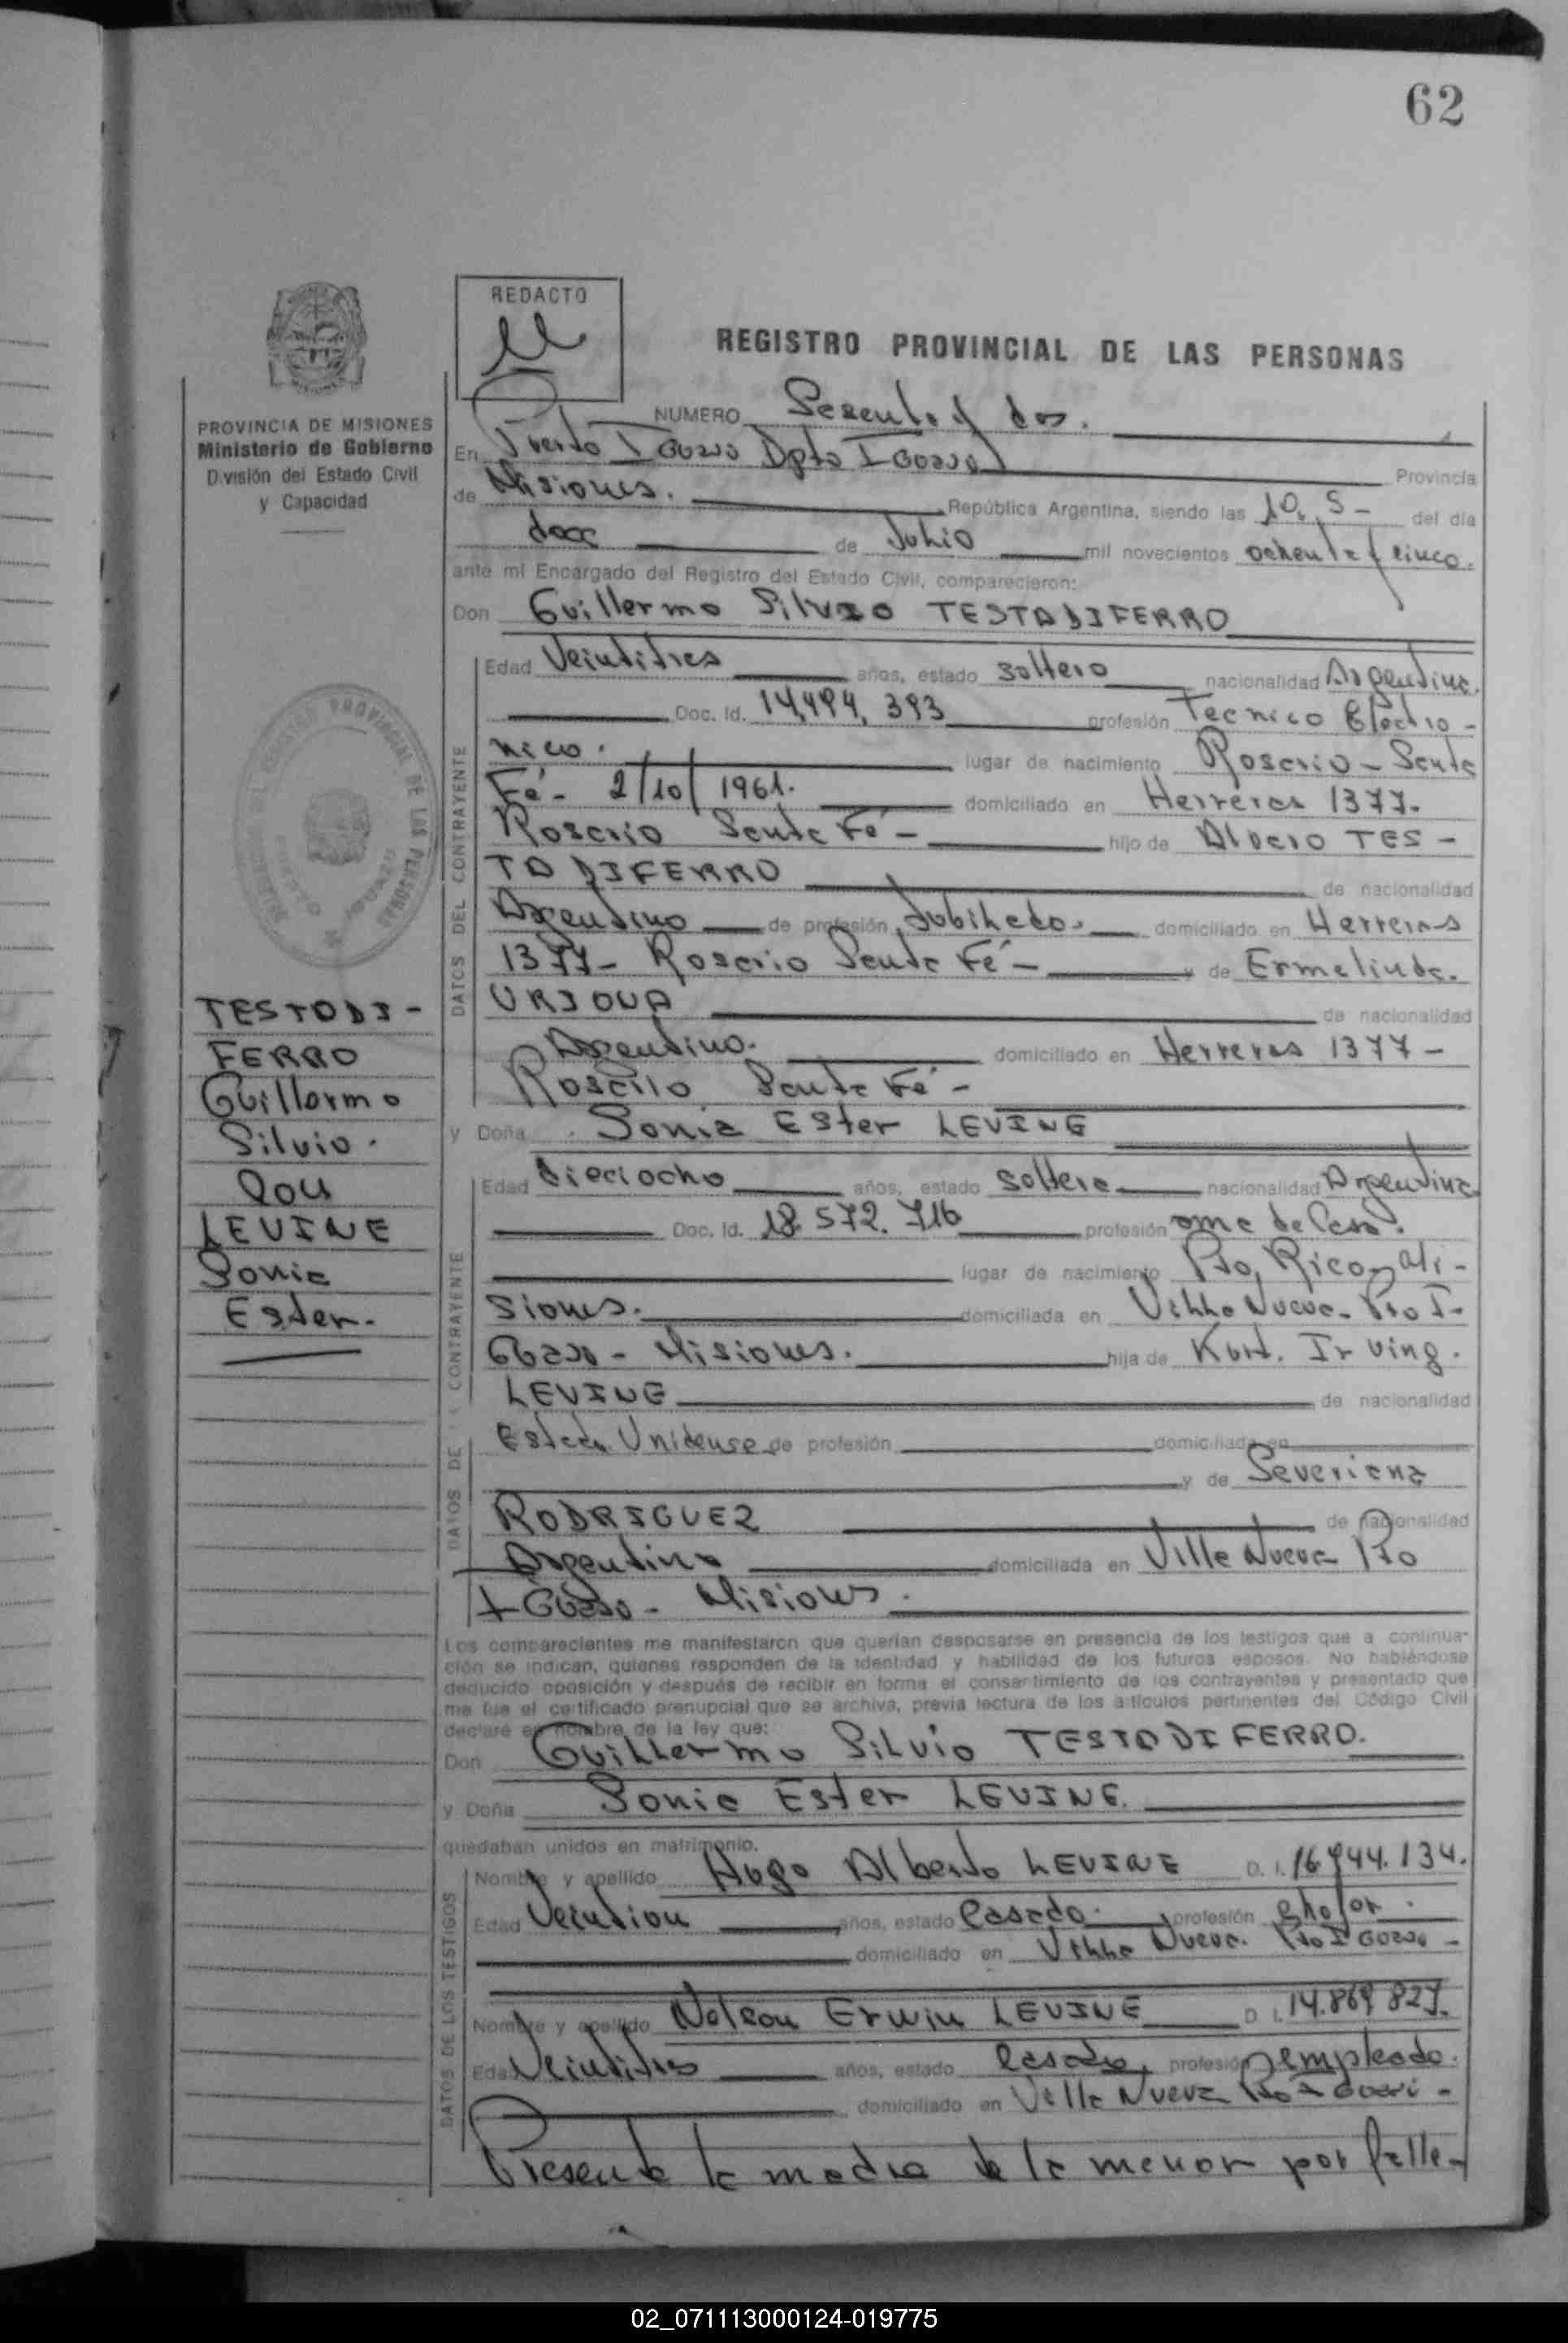 62
REDACTO
REGISTRO PROVINCIAL DE LAS PERSONAS
PROVINCIA DE MISIONES
Ministerio de Gobierno
División del Estado Civil
y Capacidad
TESTODI-
FERRO
Guillermo
Silvio.
Con
LEVINE
Sonia
Ester.-
NUMERO Sesenta y dos.
En Puerto Iguazú Dpto Iguazú Provincia
de Misiones. República Argentina, siendo las 10,5- del día
doce de Julio mil novecientos ochenta y cinco.
ante mi Encargado del Registro del Estado Civil, comparecieron:
Don Guillermo Silvio TESTODIFERRO
DATOS DEL CONTRAYENTE
Edad Veintitres años, estado soltero nacionalidad Argentina
Doc. Id. 14,494,393 profesión Tecnico Electro-
nico. lugar de nacimiento Rosario-Santa
Fé- 2/10/1961. domiciliado en Herrera 1377.
Rosario Santa Fé- hijo de Alberto TES-
TODIFERRO de nacionalidad
Argentino de profesión Jubilado. domiciliado en Herrera
1377- Rosario Santa Fé- y de Ermelinda.
URJOUA de nacionalidad
Argentino. domiciliado en Herreras 1377-
Rosario Santa Fé-
y Doña Sonia Ester LEVINE
DATOS DE LA CONTRAYENTE
Edad dieciocho años, estado soltera nacionalidad Argentina
Doc. Id. 18.572.716 profesión ama de Casa.
lugar de nacimiento Pto, Rico, Mi-
siones. domiciliada en Villa Nueva- Pto I-
Guazú- Misiones. hija de Kurt. Irving.
LEVINE de nacionalidad
Estado Unidense de profesión domiciliado en
y de Severiana
RODRIGUEZ de nacionalidad
Argentina domiciliada en Villa Nueva Pto
Iguazú- Misiones.
Los comparecientes me manifestaron que querían desposarse en presencia de los testigos que a continua-
ción se indican, quienes responden de la identidad y habilidad de los futuros esposos. No habiéndose
deducido oposición y después de recibir en forma el consentimiento de los contrayentes y presentado que
me fue el certificado prenupcial que se archiva, previa lectura de los artículos pertinentes del Código Civil
declaré en nombre de la ley que:
Don Guillermo Silvio TESTODIFERRO.
y Doña Sonia Ester LEVINE.
quedaban unidos en matrimonio.
DATOS DE LOS TESTIGOS
Nombre y apellido Hugo Alberto LEVINE D. I. 16.944.134.
Edad Veintiun años, estado Casado. profesión chofer.
domiciliado en Villa Nueva. Pto Iguazú-
Nombre y apellido Nelson Erwin LEVINE D. I. 14.869.827.
Edad Veintitres años, estado Casado, profesión empleado.
domiciliado en Villa Nueva Pto Iguazú-
Presente la madre de la menor por falle-
02_071113000124-019775